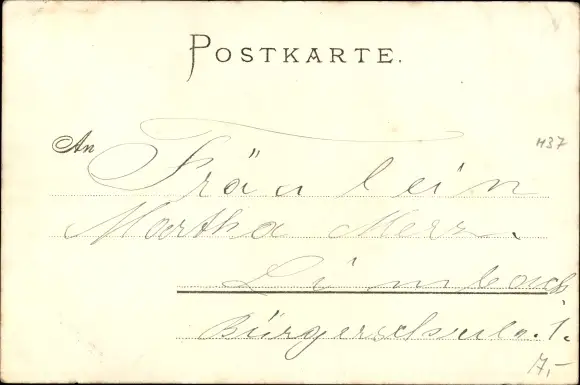 POSTKARTE.
An
H37
Fräulein
Martha Merz.
Limbach
Bürgerschule. 1.
17,-